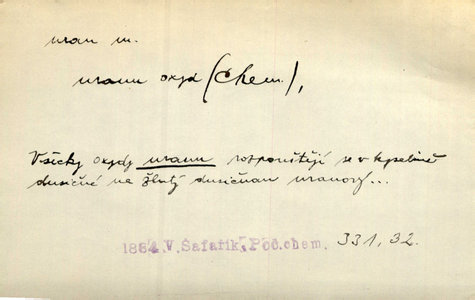 uran m.
uranu oxyd (Chem.),
Všecky oxydy uranu rozpouštějí se v kyselině
dusičné na žlutý dusičnan uranový...
1864 V. Šafařík, Poč. chem. 331, 32.